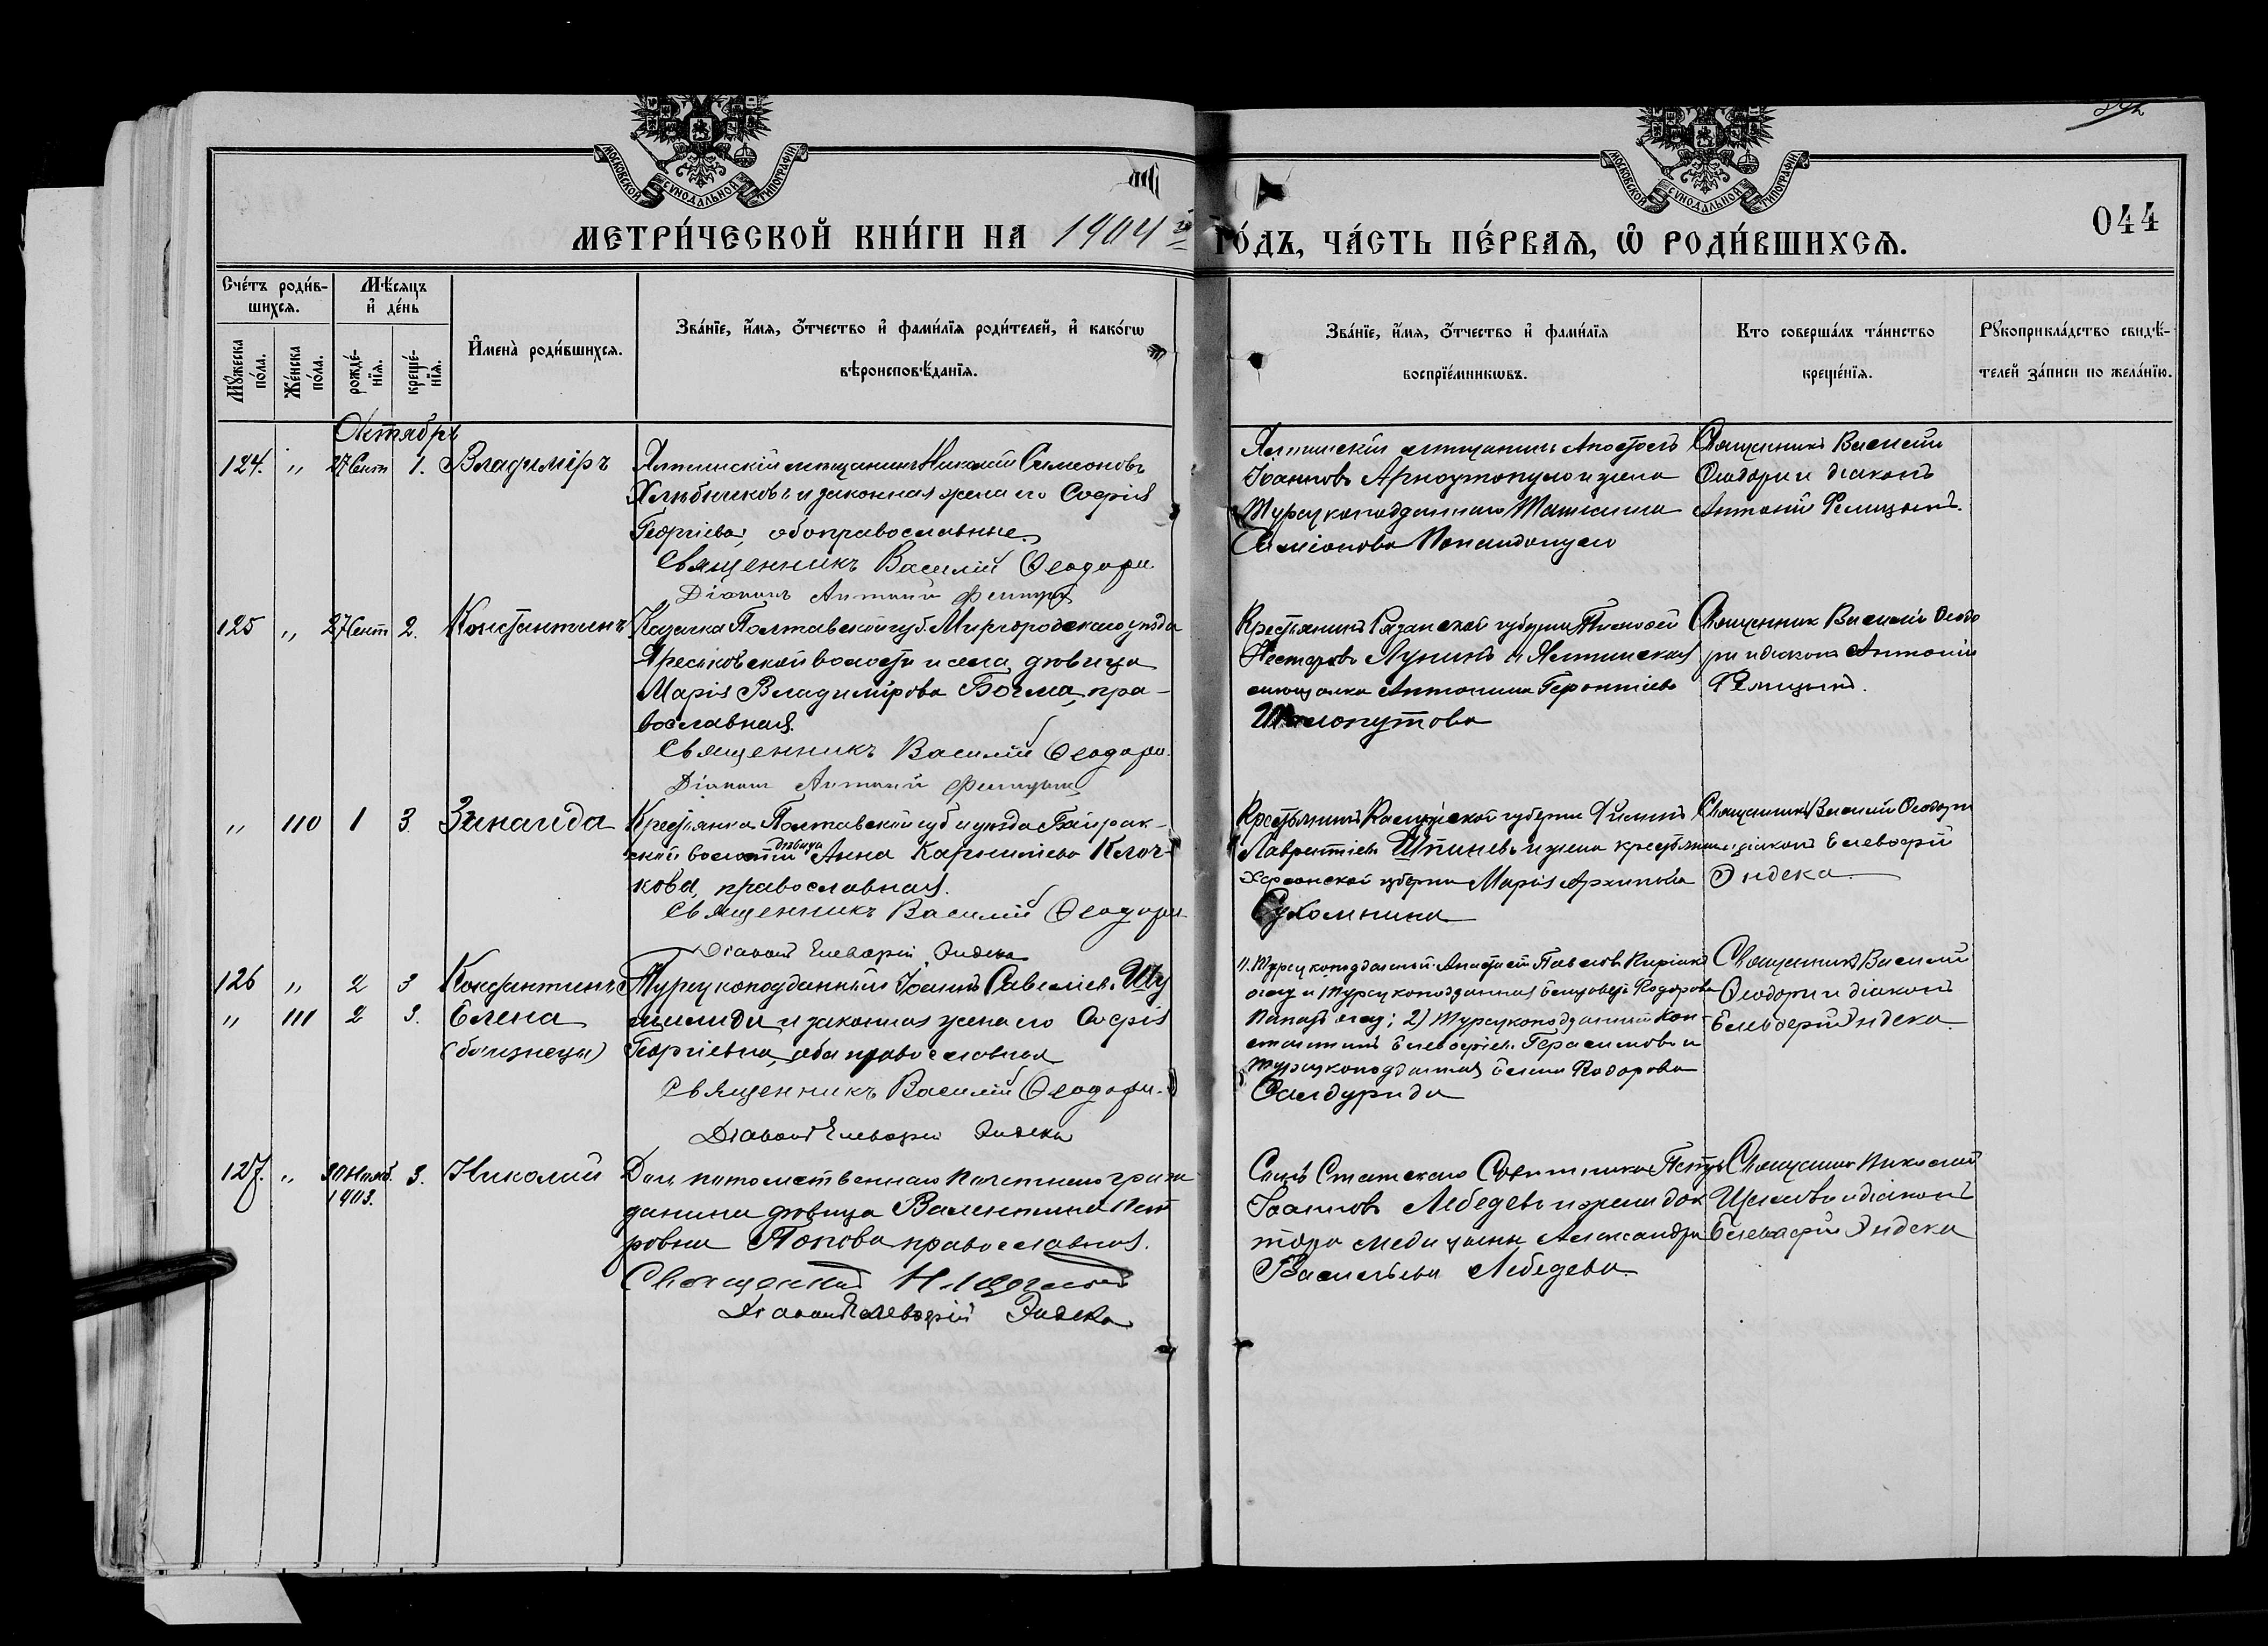 МОСКОВСКОЙ СУНОДАЛЬНОЙ ТИПОГРАФІИ
МОСКОВСКОЙ СУНОДАЛЬНОЙ ТИПОГРАФІИ
МЕТРИ́ЧЕСКОЙ КНИ́ГИ НА 1904й ГО́ДЪ, ЧА́СТЬ ПЕ́РВАЯ, Ѡ РОДИ́ВШИХСЯ.
044
Сче́тъ роди́в-
шихся.
Мѣ́сяцъ
и҆ де́нь
Мꙋ́жеска по́ла.
Же́нска по́ла.
рожде́-нїя.
креще́-нїя.
И҆мена̀ роди́вшихся.
Зва́нїе, и҆́мя, ѻ҆́тчество и҆ фами́лїя роди́телей, и҆ како́гѡ
вѣроисповѣ́данїя.
Зва́нїе, и҆́мя, ѻ҆́тчество и҆ фами́лїя
воспрїе́мникѡвъ.
Кто соверша́лъ та́инство
креще́нїя.
Рꙋкоприкла́дство свидѣ́-
телей за́писи по жела́нїю.
Октябрь
124. „ 27 Сент 1. Владиміръ
Ялтинскій мѣщанинъ Николай Симеоновъ
Хлѣбниковъ и законная жена его Софія
Георгіева, оба православные.
Священникъ Василій Ѳеодори
Діаконъ Антоній
Ялтинскій мѣщанинъ Апостолъ
Іоанновъ Арнаутопуло и жена
Турецкоподданнаго
Симеонова Попандопуло
Священникъ Василій
Ѳеодори и діаконъ
Антоній
125 „ 27 Сент 2. Константинъ
Казачка Полтавской губ. Миргородскаго уѣзда
Яресковской волости и села, дѣвица
Марія Владимірова Богма, пра-
вославная.
Священникъ Василій Ѳеодори.
Діаконъ Антоній
Крестьянинъ Рязанской губерніи Тимоѳей
Нестеровъ Лунинъ и Ялтинская
мѣщанка Антонина Геронтіева
Шелопутова
Священникъ Василій Ѳеодо
ри и діаконъ Антоній
„ 110 1 3. Зинаида
Крестьянка Полтавской губ и уѣзда Байрак-
ской волости дѣвица Анна Карнилiева Клоч-
кова, православная.
Священникъ Василій Ѳеодори
Діаконъ Елевѳерій Эндека
Крестьянинъ Калужской губерніи
Лаврентіевъ Шпиневъ и жена крестьянина
Херсонской губерніи Марія Архипова
Сухомлинa
Священникъ Василій Ѳеодори
и діаконъ Елевѳерій
Эндека
126 „ 2 3 Константинъ
„ 111 2 3. Елена
(близнецы)
Турецкоподданный Іоаннъ Савеліевъ Шу
милиди и законная жена его Софія
Георгіевна, оба православные
Священникъ Василій Ѳеодори.
Діаконъ Елевѳерій Эндека
1). Турецкоподданный Анастасій Павловъ Киріакъ
оглу и Турецкоподданная Елизавета Ѳеодорова
Папазъ оглу; 2) Турецкоподданный Кон-
стантинъ Елевѳеріевъ Герасимовъ и
Турецкоподданная Елена Ѳеодорова
Салдуриди
Священникъ Василій
Ѳеодори и діаконъ
Елевѳерій Эндека.
127. „ 30 Нояб. 1903. 3. Николай
Дочь потомственнаго почетнаго граж
данина дѣвица Валентина Пет
ровна Попова православная.
Священникъ Н. Щегловъ
Діаконъ Елевѳерій Эндека
Сынъ Статскаго Совѣтника Петръ
Іоанновъ Лебедевъ и жена док
тора медицины Александра
Васильева Лебедева.
Священникъ Николай
Щегловъ и діаконъ
Елевѳерій Эндека